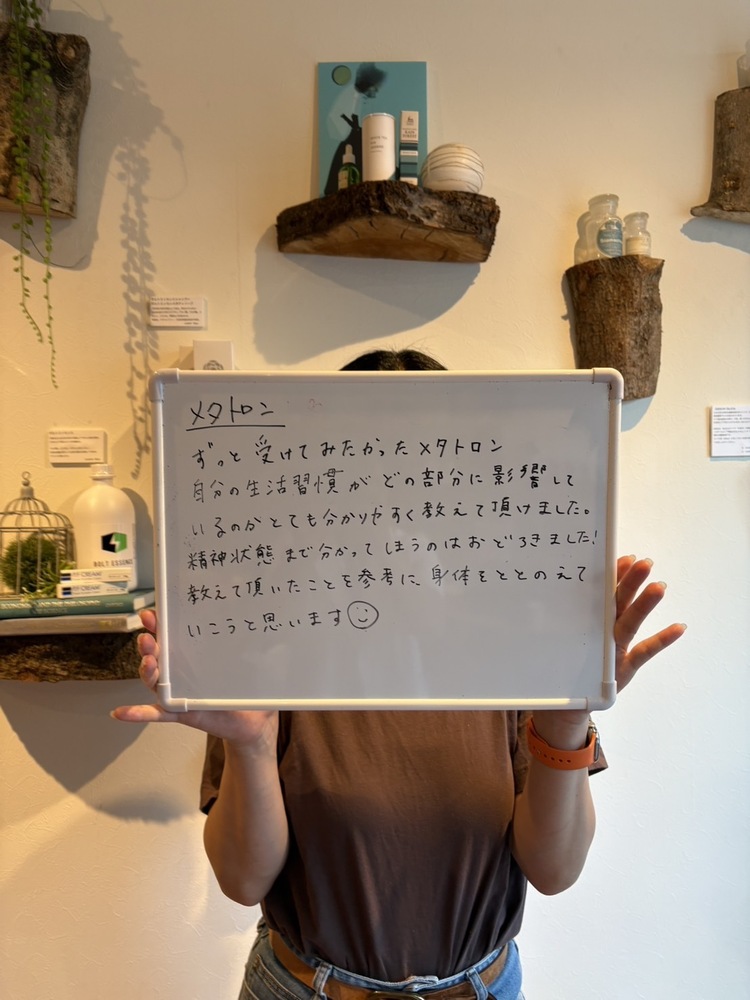 メタトロン
ずっと受けてみたかったメタトロン
自分の生活習慣がどの部分に影響して
いるのかとても分かりやすく教えて頂けました。
精神状態まで分かってしまうのはおどろきました!
教えて頂いたことを参考に、身体をととのえて
いこうと思います
BOLT ESSENCE